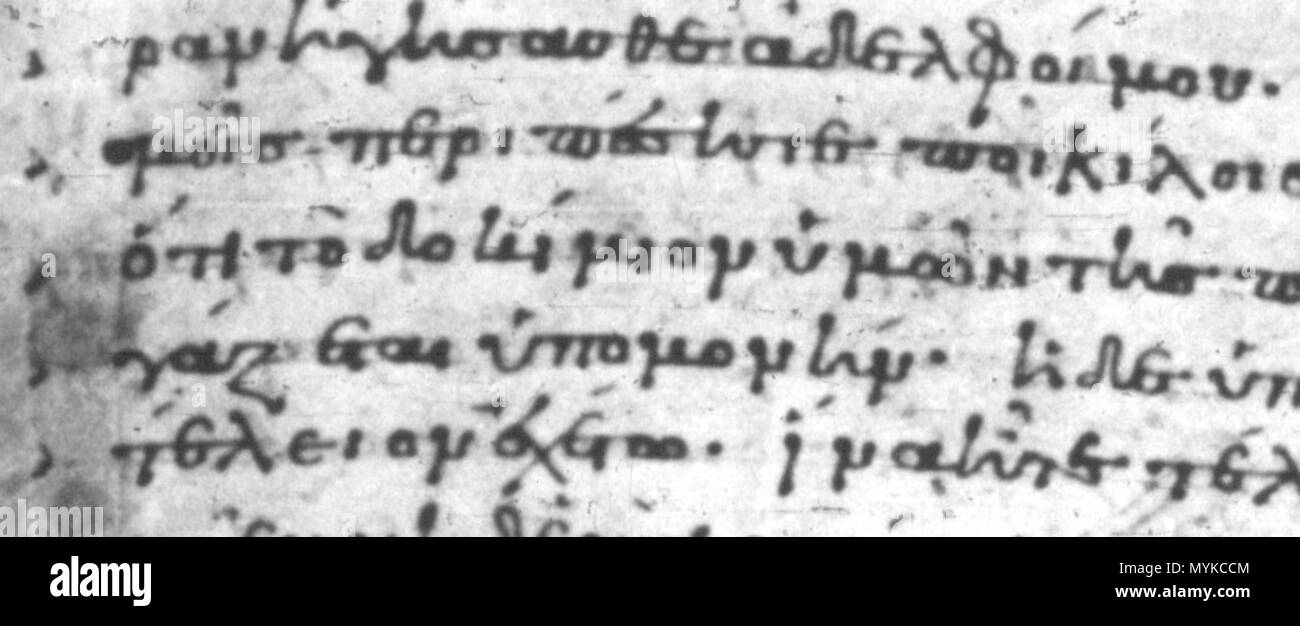 ραν ἡγήσασθε ἀδελφοί μου·
μοῖς περιπέσητε ποικίλοις
ὅτι τὸ δοκίμιον ὑμῶν τῆς π
γάζεται ὑπομονήν· ἡ δὲ ὑπ
τέλειον ἐχέτω· ἵνα ἦτε τέλ
alamy
Image ID: MYKCCM
www.alamy.com